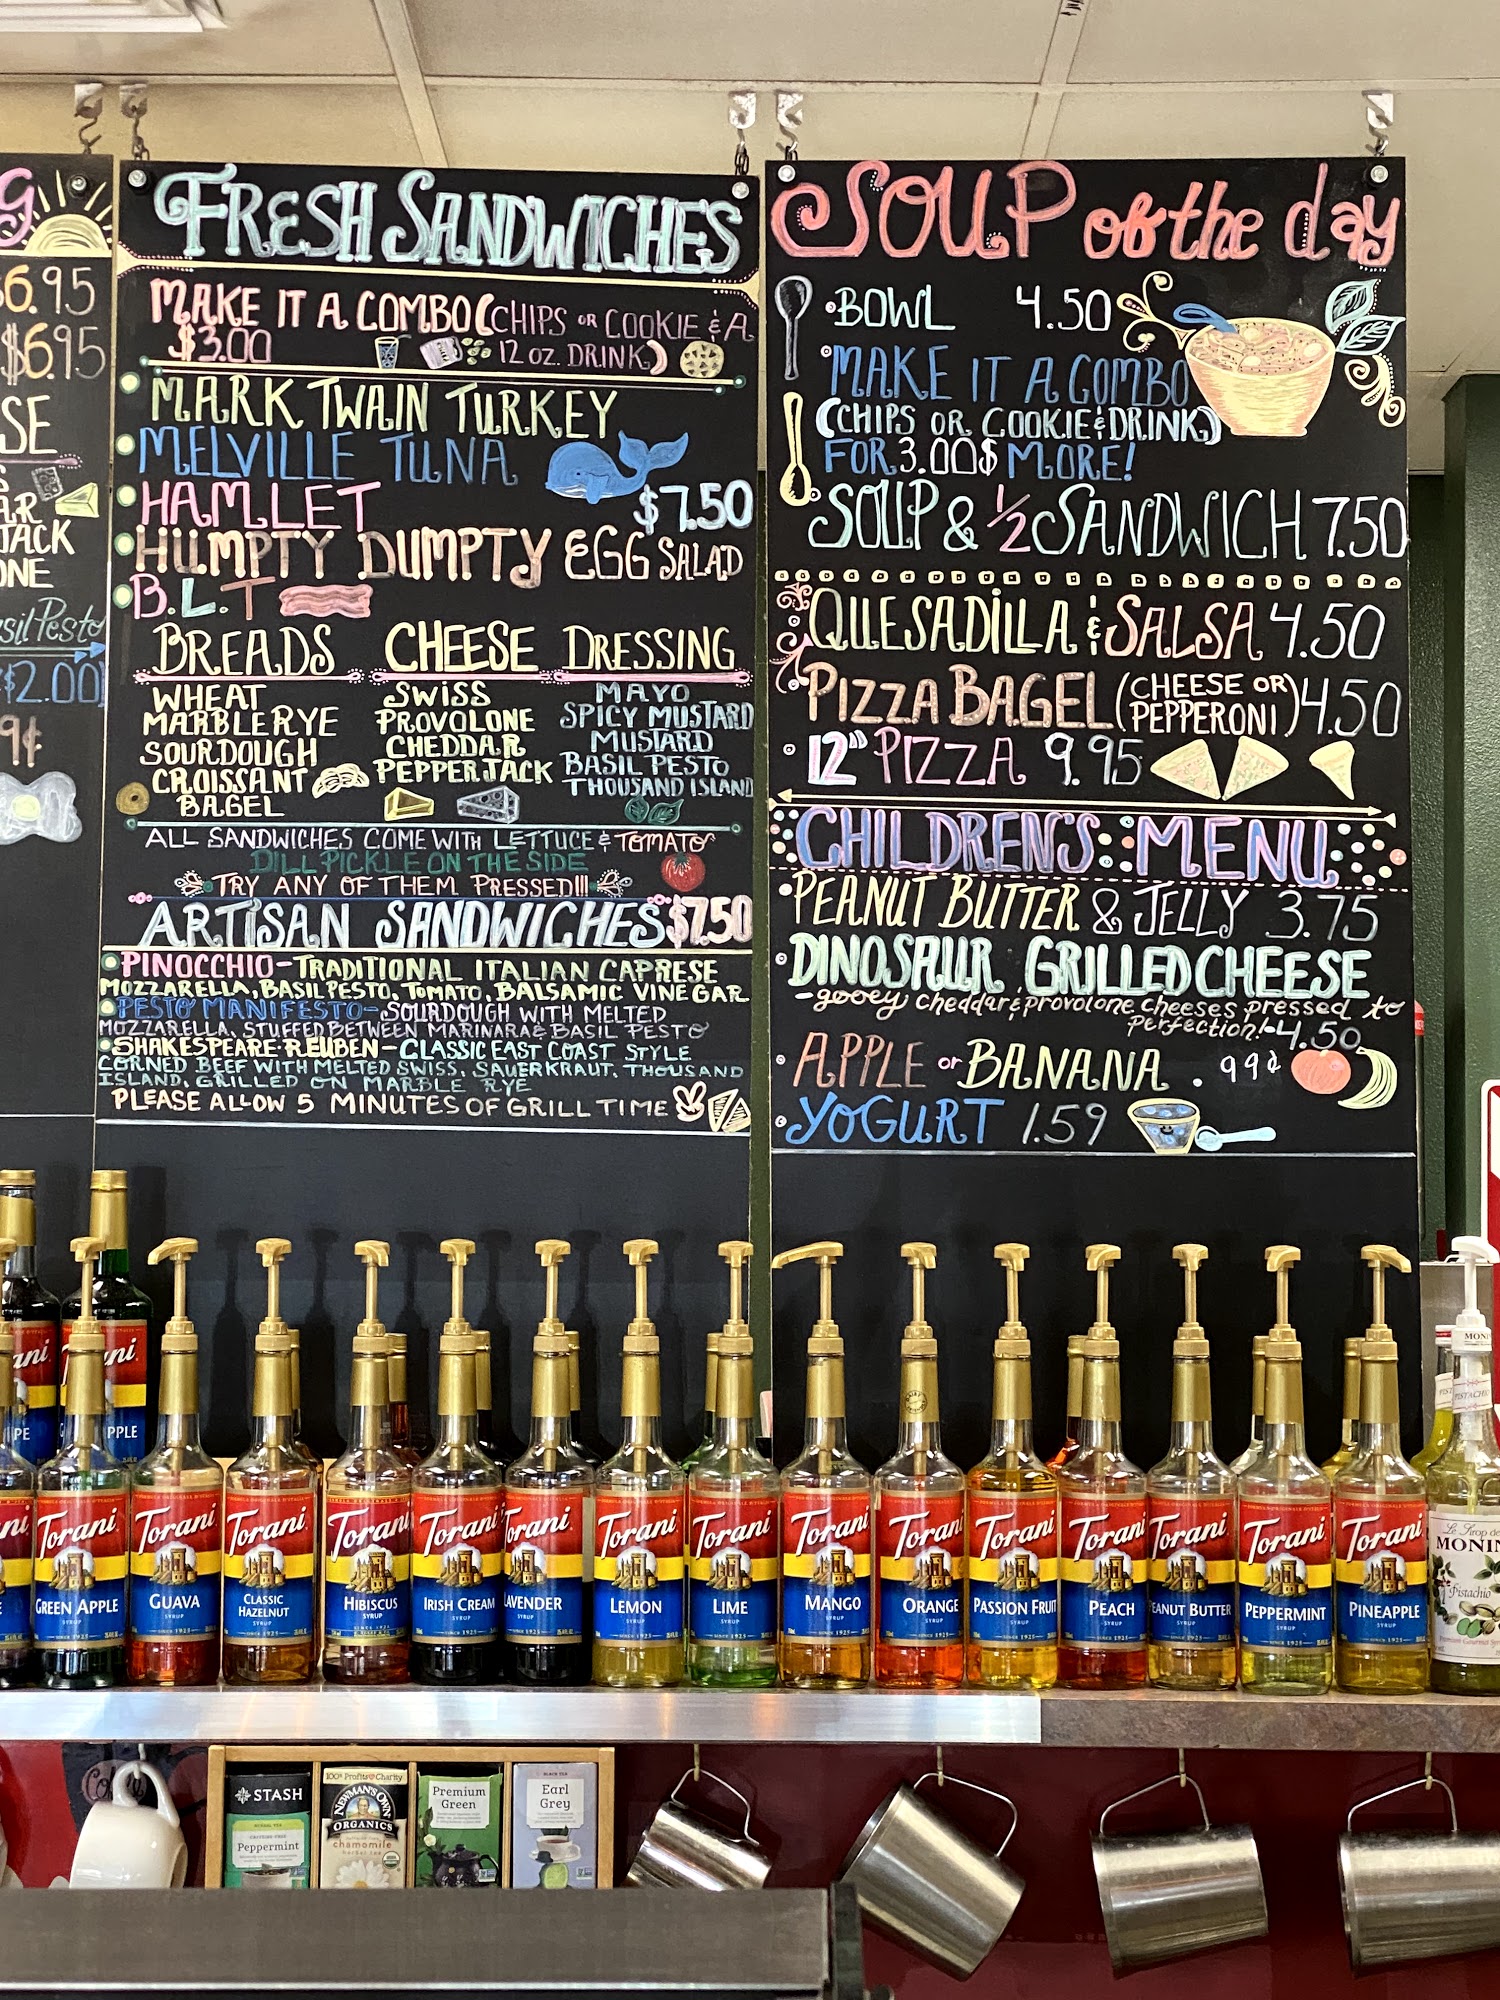 G
$6.95
$6.95
SE
S
AR
JACK
ONE
asil Pesto
$2.00
9¢
FRESH SANDWICHES
MAKE IT A COMBO (CHIPS OR COOKIE & A
$3.00 12 OZ. DRINK)
MARK TWAIN TURKEY
MELVILLE TUNA
HAMLET $7.50
HUMPTY DUMPTY EGG SALAD
B.L.T
BREADS CHEESE DRESSING
WHEAT SWISS MAYO
MARBLE RYE PROVOLONE SPICY MUSTARD
SOURDOUGH CHEDDAR MUSTARD
CROISSANT PEPPERJACK BASIL PESTO
BAGEL THOUSAND ISLAND
ALL SANDWICHES COME WITH LETTUCE & TOMATO
DILL PICKLE ON THE SIDE
TRY ANY OF THEM PRESSED!!!
ARTISAN SANDWICHES $7.50
PINOCCHIO - TRADITIONAL ITALIAN CAPRESE
MOZZARELLA, BASIL PESTO, TOMATO, BALSAMIC VINEGAR
PESTO MANIFESTO - SOURDOUGH WITH MELTED
MOZZARELLA, STUFFED BETWEEN MARINARA & BASIL PESTO
SHAKESPEARE REUBEN - CLASSIC EAST COAST STYLE
CORNED BEEF WITH MELTED SWISS, SAUERKRAUT, THOUSAND
ISLAND, GRILLED ON MARBLE RYE
PLEASE ALLOW 5 MINUTES OF GRILL TIME
SOUP of the day
BOWL 4.50
MAKE IT A COMBO
(CHIPS OR COOKIE & DRINK)
FOR 3.00$ MORE!
SOUP & 1/2 SANDWICH 7.50
QUESADILLA & SALSA 4.50
PIZZA BAGEL (CHEESE OR PEPPERONI) 4.50
12" PIZZA 9.95
CHILDREN'S MENU
PEANUT BUTTER & JELLY 3.75
DINOSAUR GRILLED CHEESE
- gooey cheddar & provolone cheeses pressed to
perfection! - 4.50
APPLE or BANANA . 99¢
YOGURT 1.59
Torani GREEN APPLE
Torani GUAVA SYRUP
Torani CLASSIC HAZELNUT SYRUP
Torani HIBISCUS SYRUP
Torani IRISH CREAM SYRUP
Torani LAVENDER SYRUP
Torani LEMON SYRUP
Torani LIME SYRUP
Torani MANGO SYRUP
Torani ORANGE
Torani PASSION FRUIT SYRUP
Torani PEACH SYRUP
Torani PEANUT BUTTER SYRUP
Torani PEPPERMINT SYRUP
Torani PINEAPPLE SYRUP
Le Sirop de
MONIN
Pistachio
STASH
Peppermint
100% Profits to Charity
NEWMAN'S OWN
ORGANICS
chamomile
herbal tea
Premium
Green
BLACK TEA
Earl
Grey